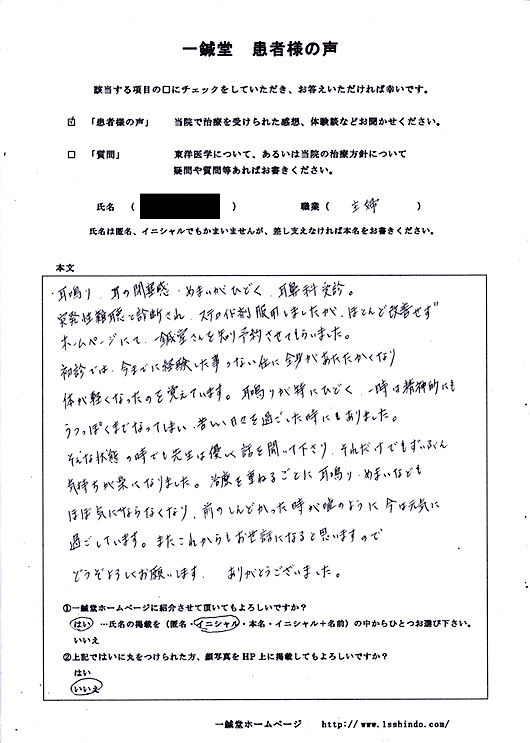 一鍼堂 患者様の声
該当する項目の□にチェックをしていただき、お答えいただければ幸いです。
☑ 「患者様の声」 当院で治療を受けられた感想、体験談などお聞かせください。
□ 「質問」 東洋医学について、あるいは当院の治療方針について
疑問や質問等あればお書きください。
氏名 ( ) 職業 ( 主婦 )
氏名は匿名、イニシャルでもかまいませんが、差し支えなければ本名をお書きください。
本文
・耳鳴り、耳の閉塞感・めまいがひどく、耳鼻科受診。
突発性難聴と診断され、ステロイド剤服用しましたが、ほとんど改善せず
ホームページにて、一鍼堂さんを知り予約させてもらいました。
初診では、今までに経験した事のない位に全身があたたかくなり
体が軽くなったのを覚えています。耳鳴りが特にひどく、一時は精神的にも
うつっぽくまでなってしまい、苦しい日々を過ごした時にもありました。
そんな状態の時でも先生は優しく話を聞いて下さり、それだけでもずいぶん
気持ちが楽になりました。治療を重ねるごとに耳鳴り・めまいなども
ほぼ気にならなくなり、前のしんどかった時が嘘のように今は元気に
過ごしています。またこれからもお世話になると思いますので
どうぞよろしくお願いします。 ありがとうございました。
①一鍼堂ホームページに紹介させて頂いてもよろしいですか?
はい …氏名の掲載を(匿名・イニシャル・本名・イニシャル+名前)の中からひとつお選び下さい。
いいえ
②上記ではいに丸をつけられた方、顔写真をHP上に掲載してもよろしいですか?
はい
いいえ
一鍼堂ホームページ http://www.1sshindo.com/